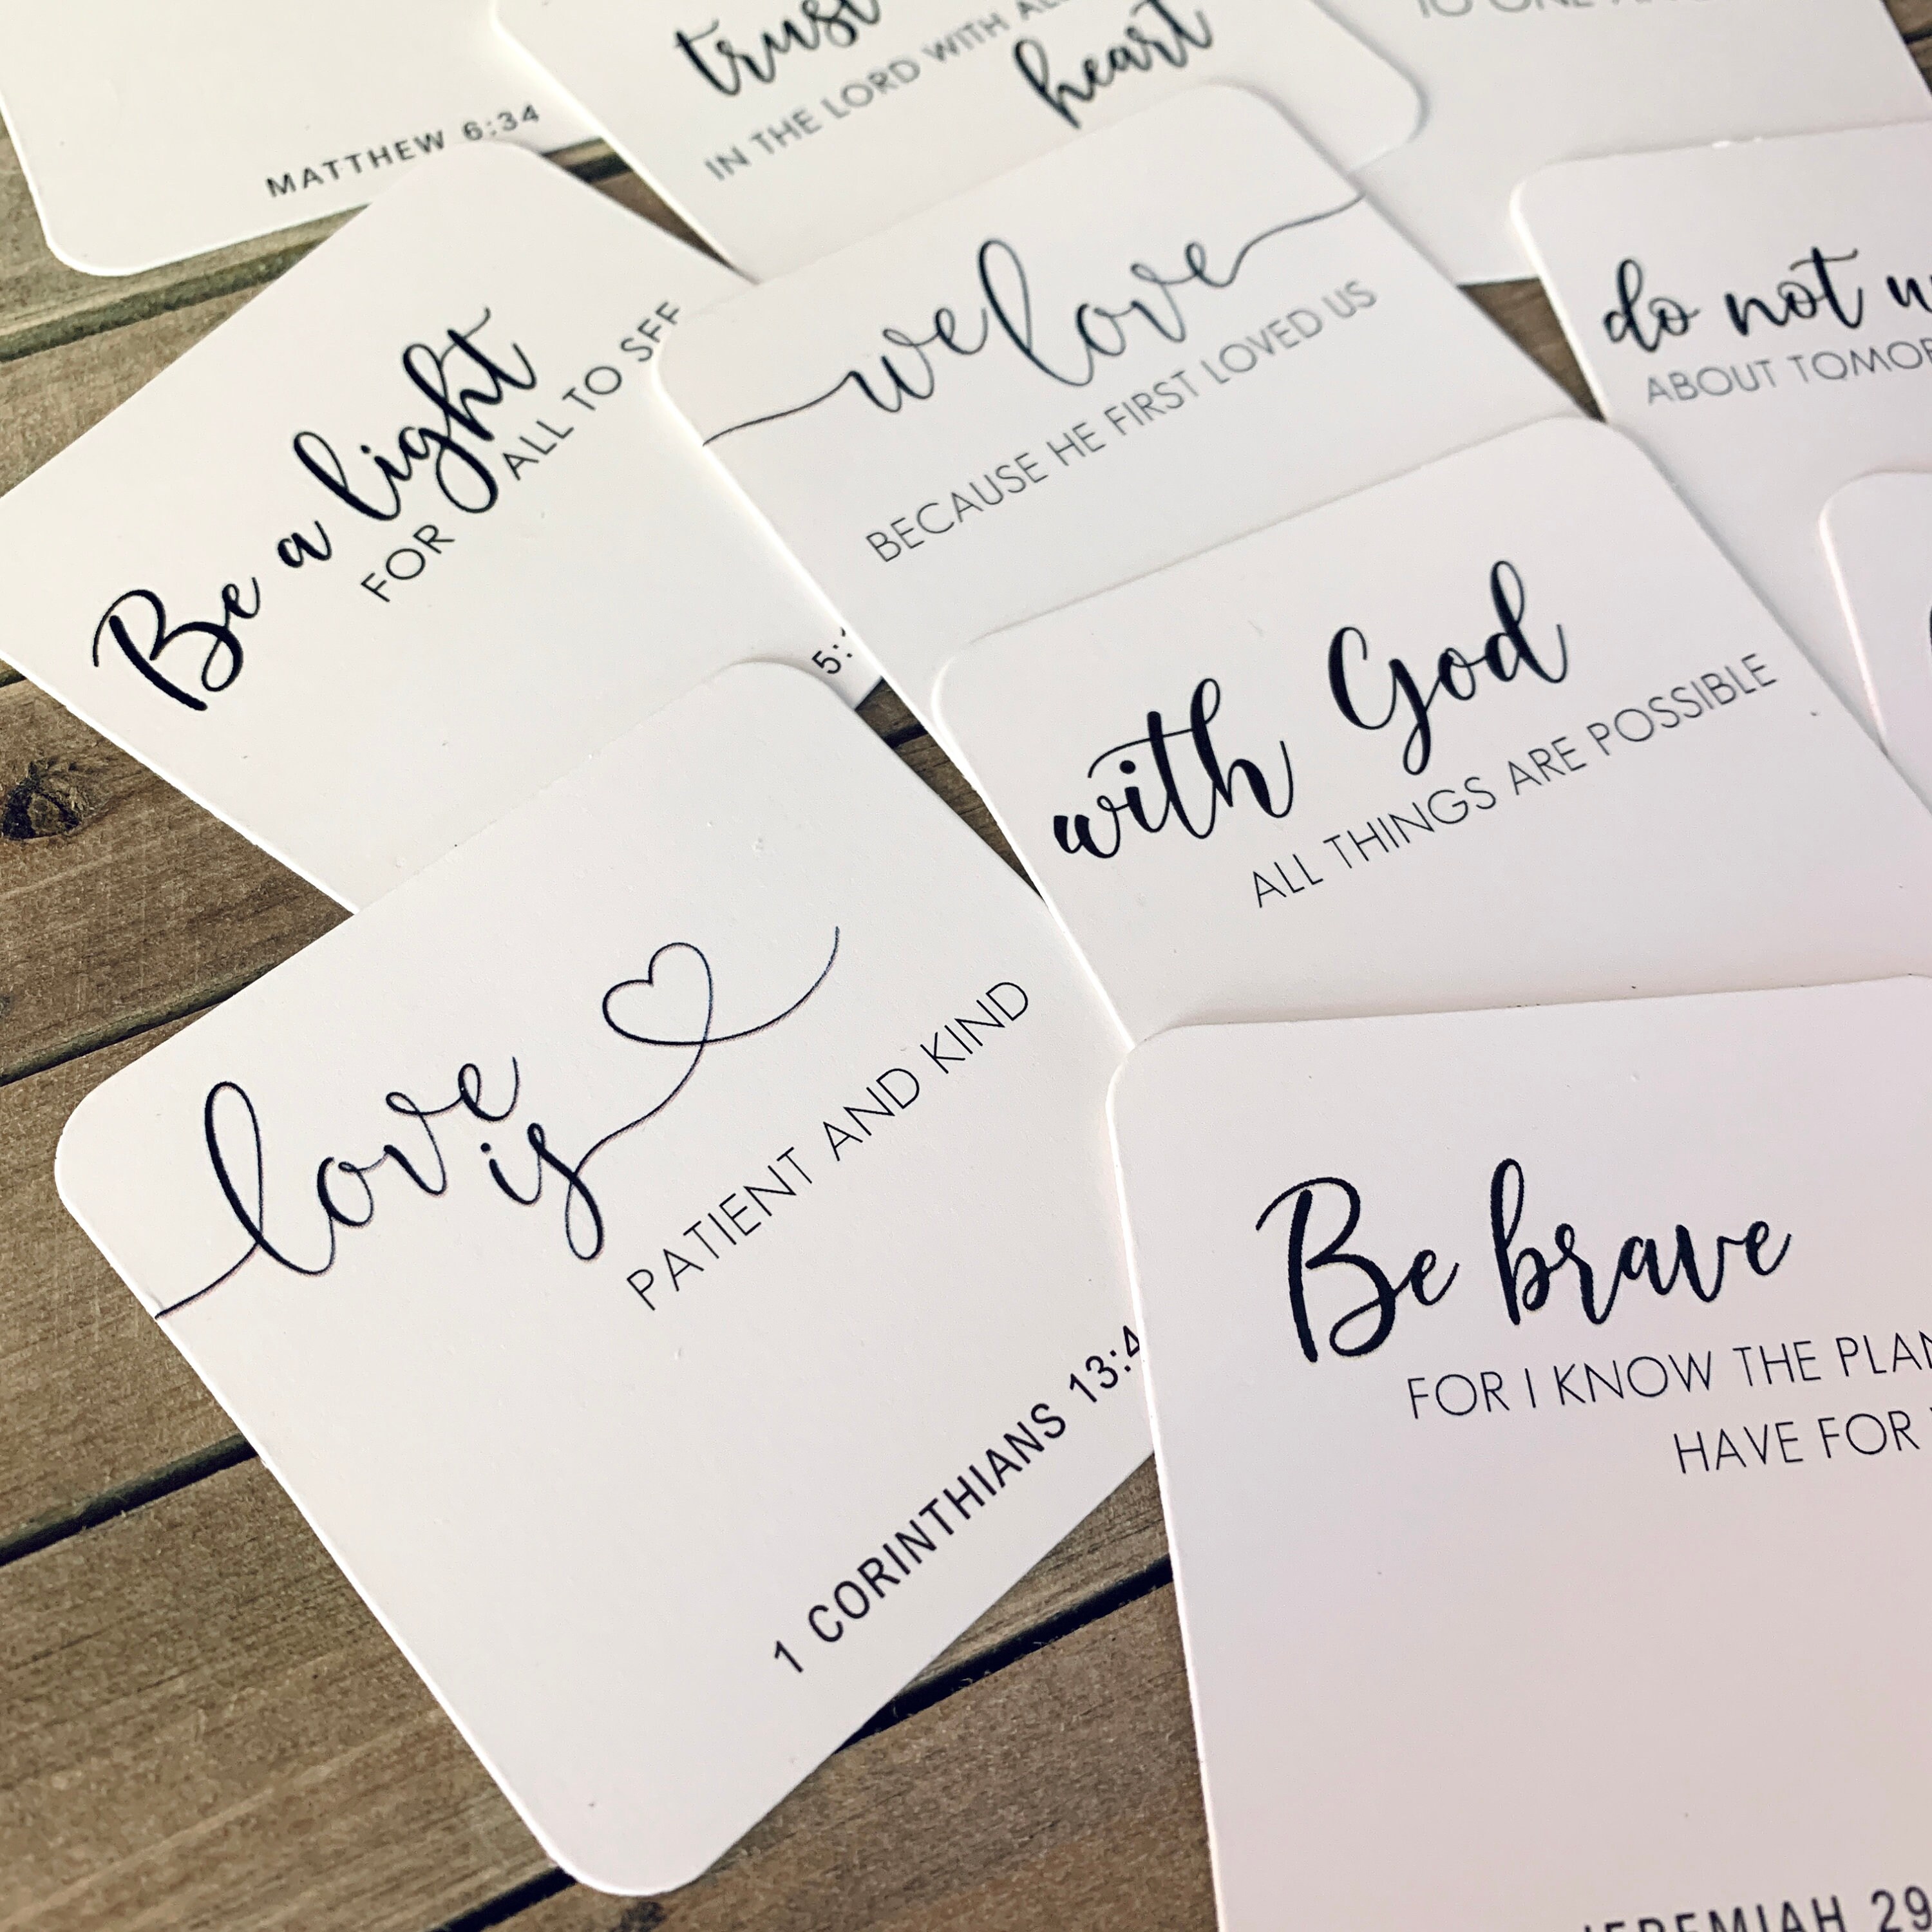 MATTHEW 6:34
trust
IN THE LORD WITH
heart
TO ONE
Be a light
FOR ALL TO SEE
5:
we love
BECAUSE HE FIRST LOVED US
do not
ABOUT
with God
ALL THINGS ARE POSSIBLE
love
is
PATIENT AND KIND
1 CORINTHIANS 13:4
Be brave
FOR I KNOW THE
HAVE FOR
JEREMIAH 29